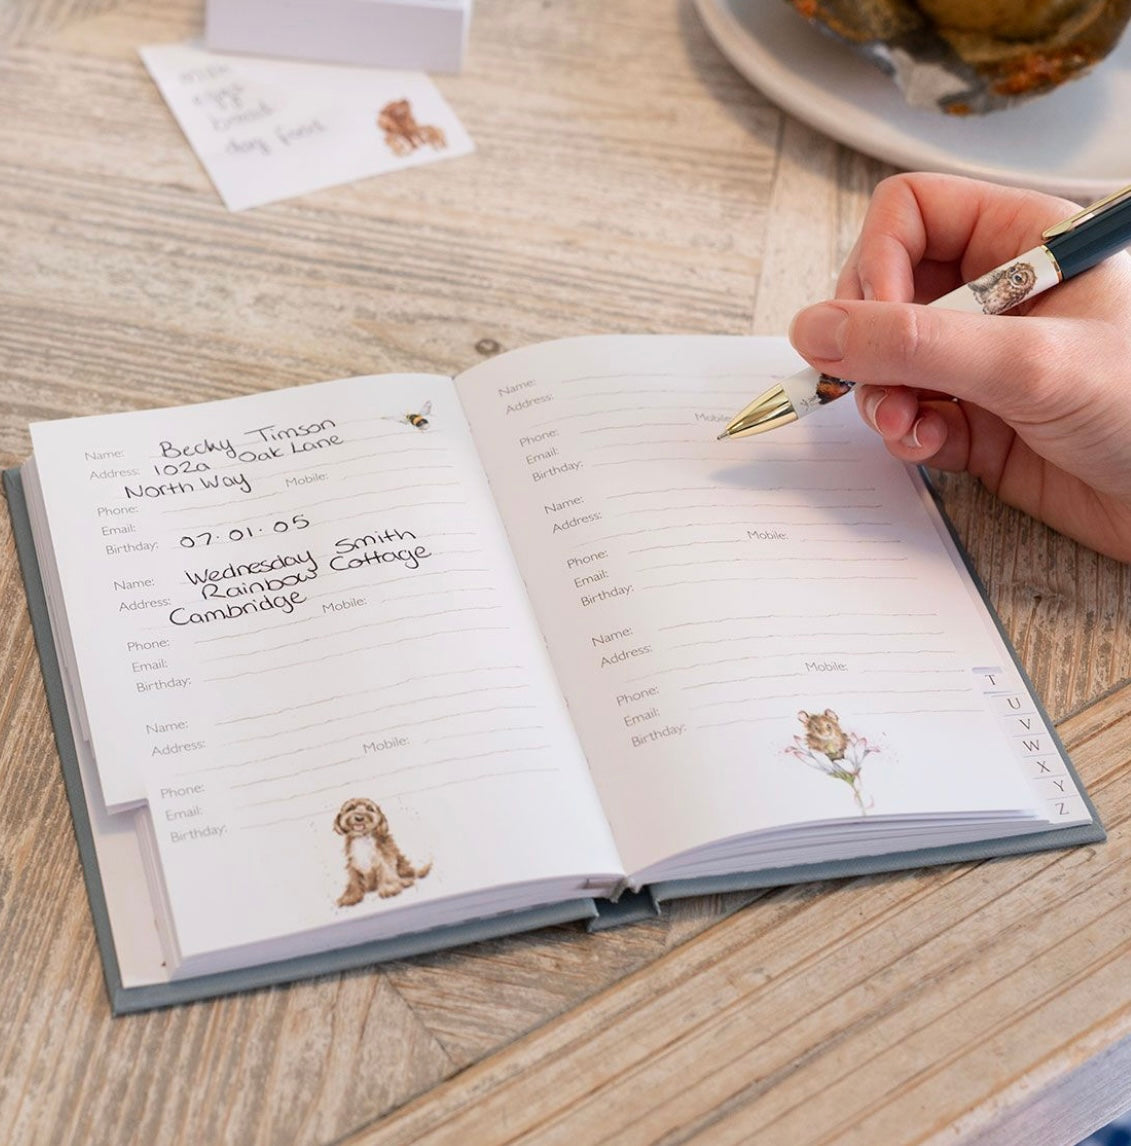 eggs
bread
dog food
Name: Becky Timson
Address: 102a Oak Lane
North Way Mobile:
Phone:
Email:
Birthday: 07.01.05
Name: Wednesday Smith
Address: Rainbow Cottage
Cambridge Mobile:
Phone:
Email:
Birthday:
Name:
Address:
Mobile:
Phone:
Email:
Birthday:
Name:
Address:
Mobile:
Phone:
Email:
Birthday:
Name:
Address:
Mobile:
Phone:
Email:
Birthday:
Name:
Address:
Mobile:
Phone:
Email:
Birthday:
T
U
V
W
X
Y
Z